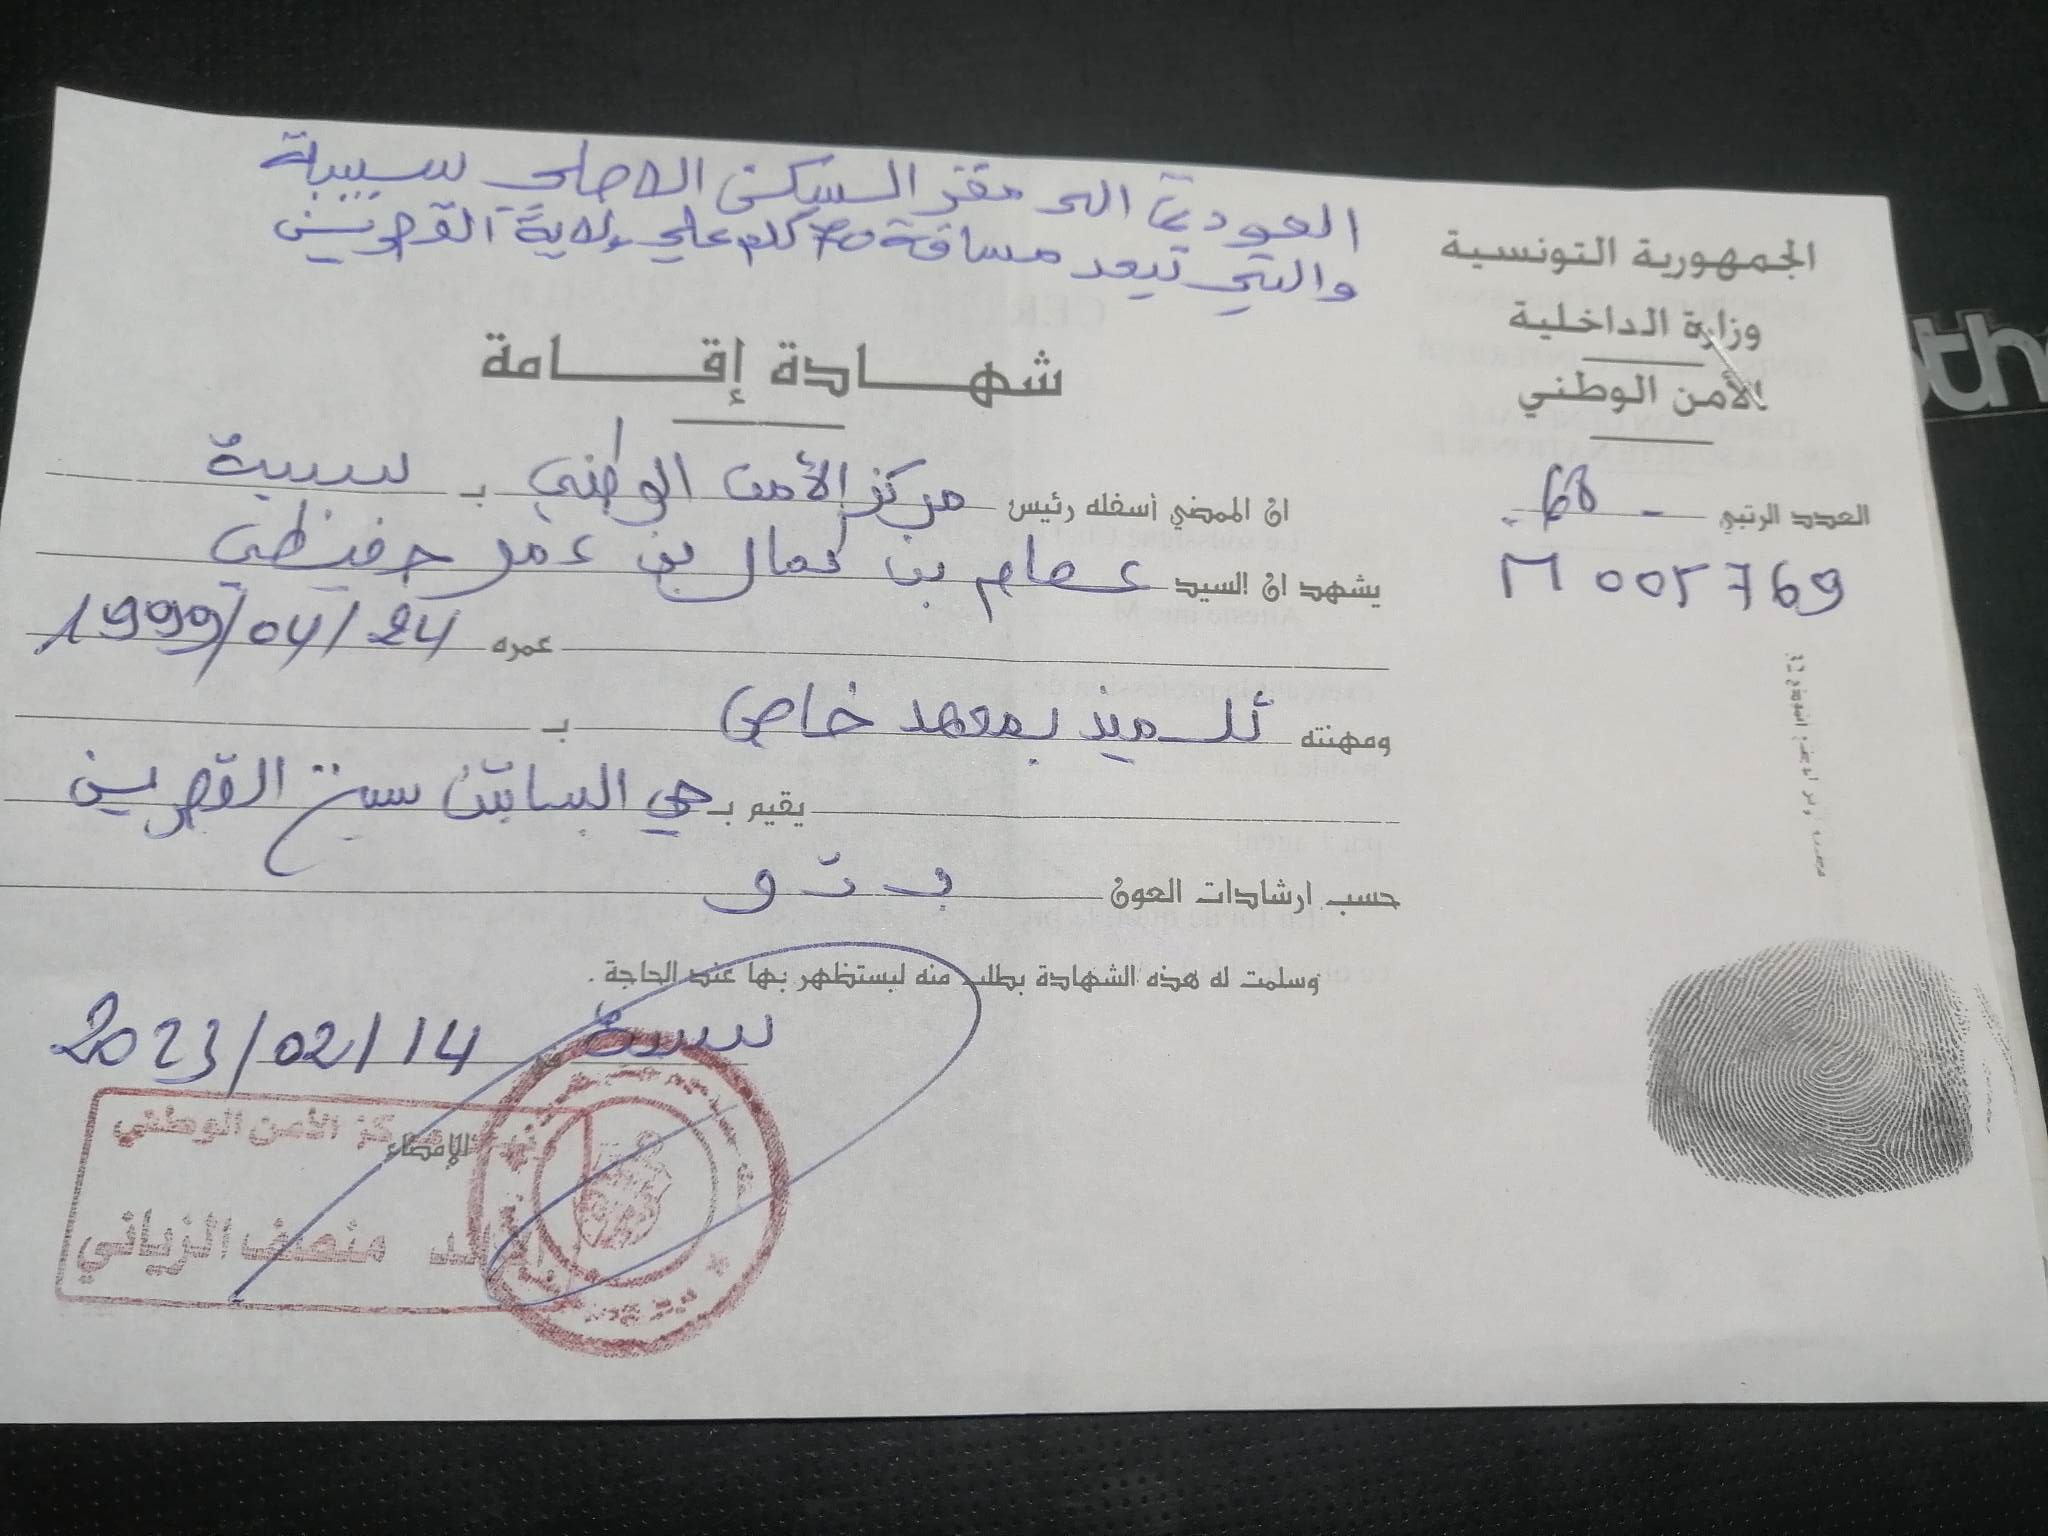 العودة الى مقر السكنى الاصلي سبيبة
والتي تبعد مسافة 70 كلم على ولاية القصرين
الجمهورية التونسية
وزارة الداخلية
الأمن الوطني
العدد الرتبي - 68
M 005769
شهادة إقامة
ان الممضي أسفله رئيس مركز الأمن الوطني بـ سبيبة
يشهد ان السيد عصام بن كمال بن عمر حفيظي
عمره 1999/04/24
ومهنته تلميذ بمعهد خاص بـ
يقيم بـ حي البساتين سبيبة القصرين
حسب ارشادات العون
وسلمت له هذه الشهادة بطلب منه ليستظهر بها عند الحاجة .
سبيبة في 2023/02/14
الإمضاء
مركز الأمن الوطني
منصف الزياني